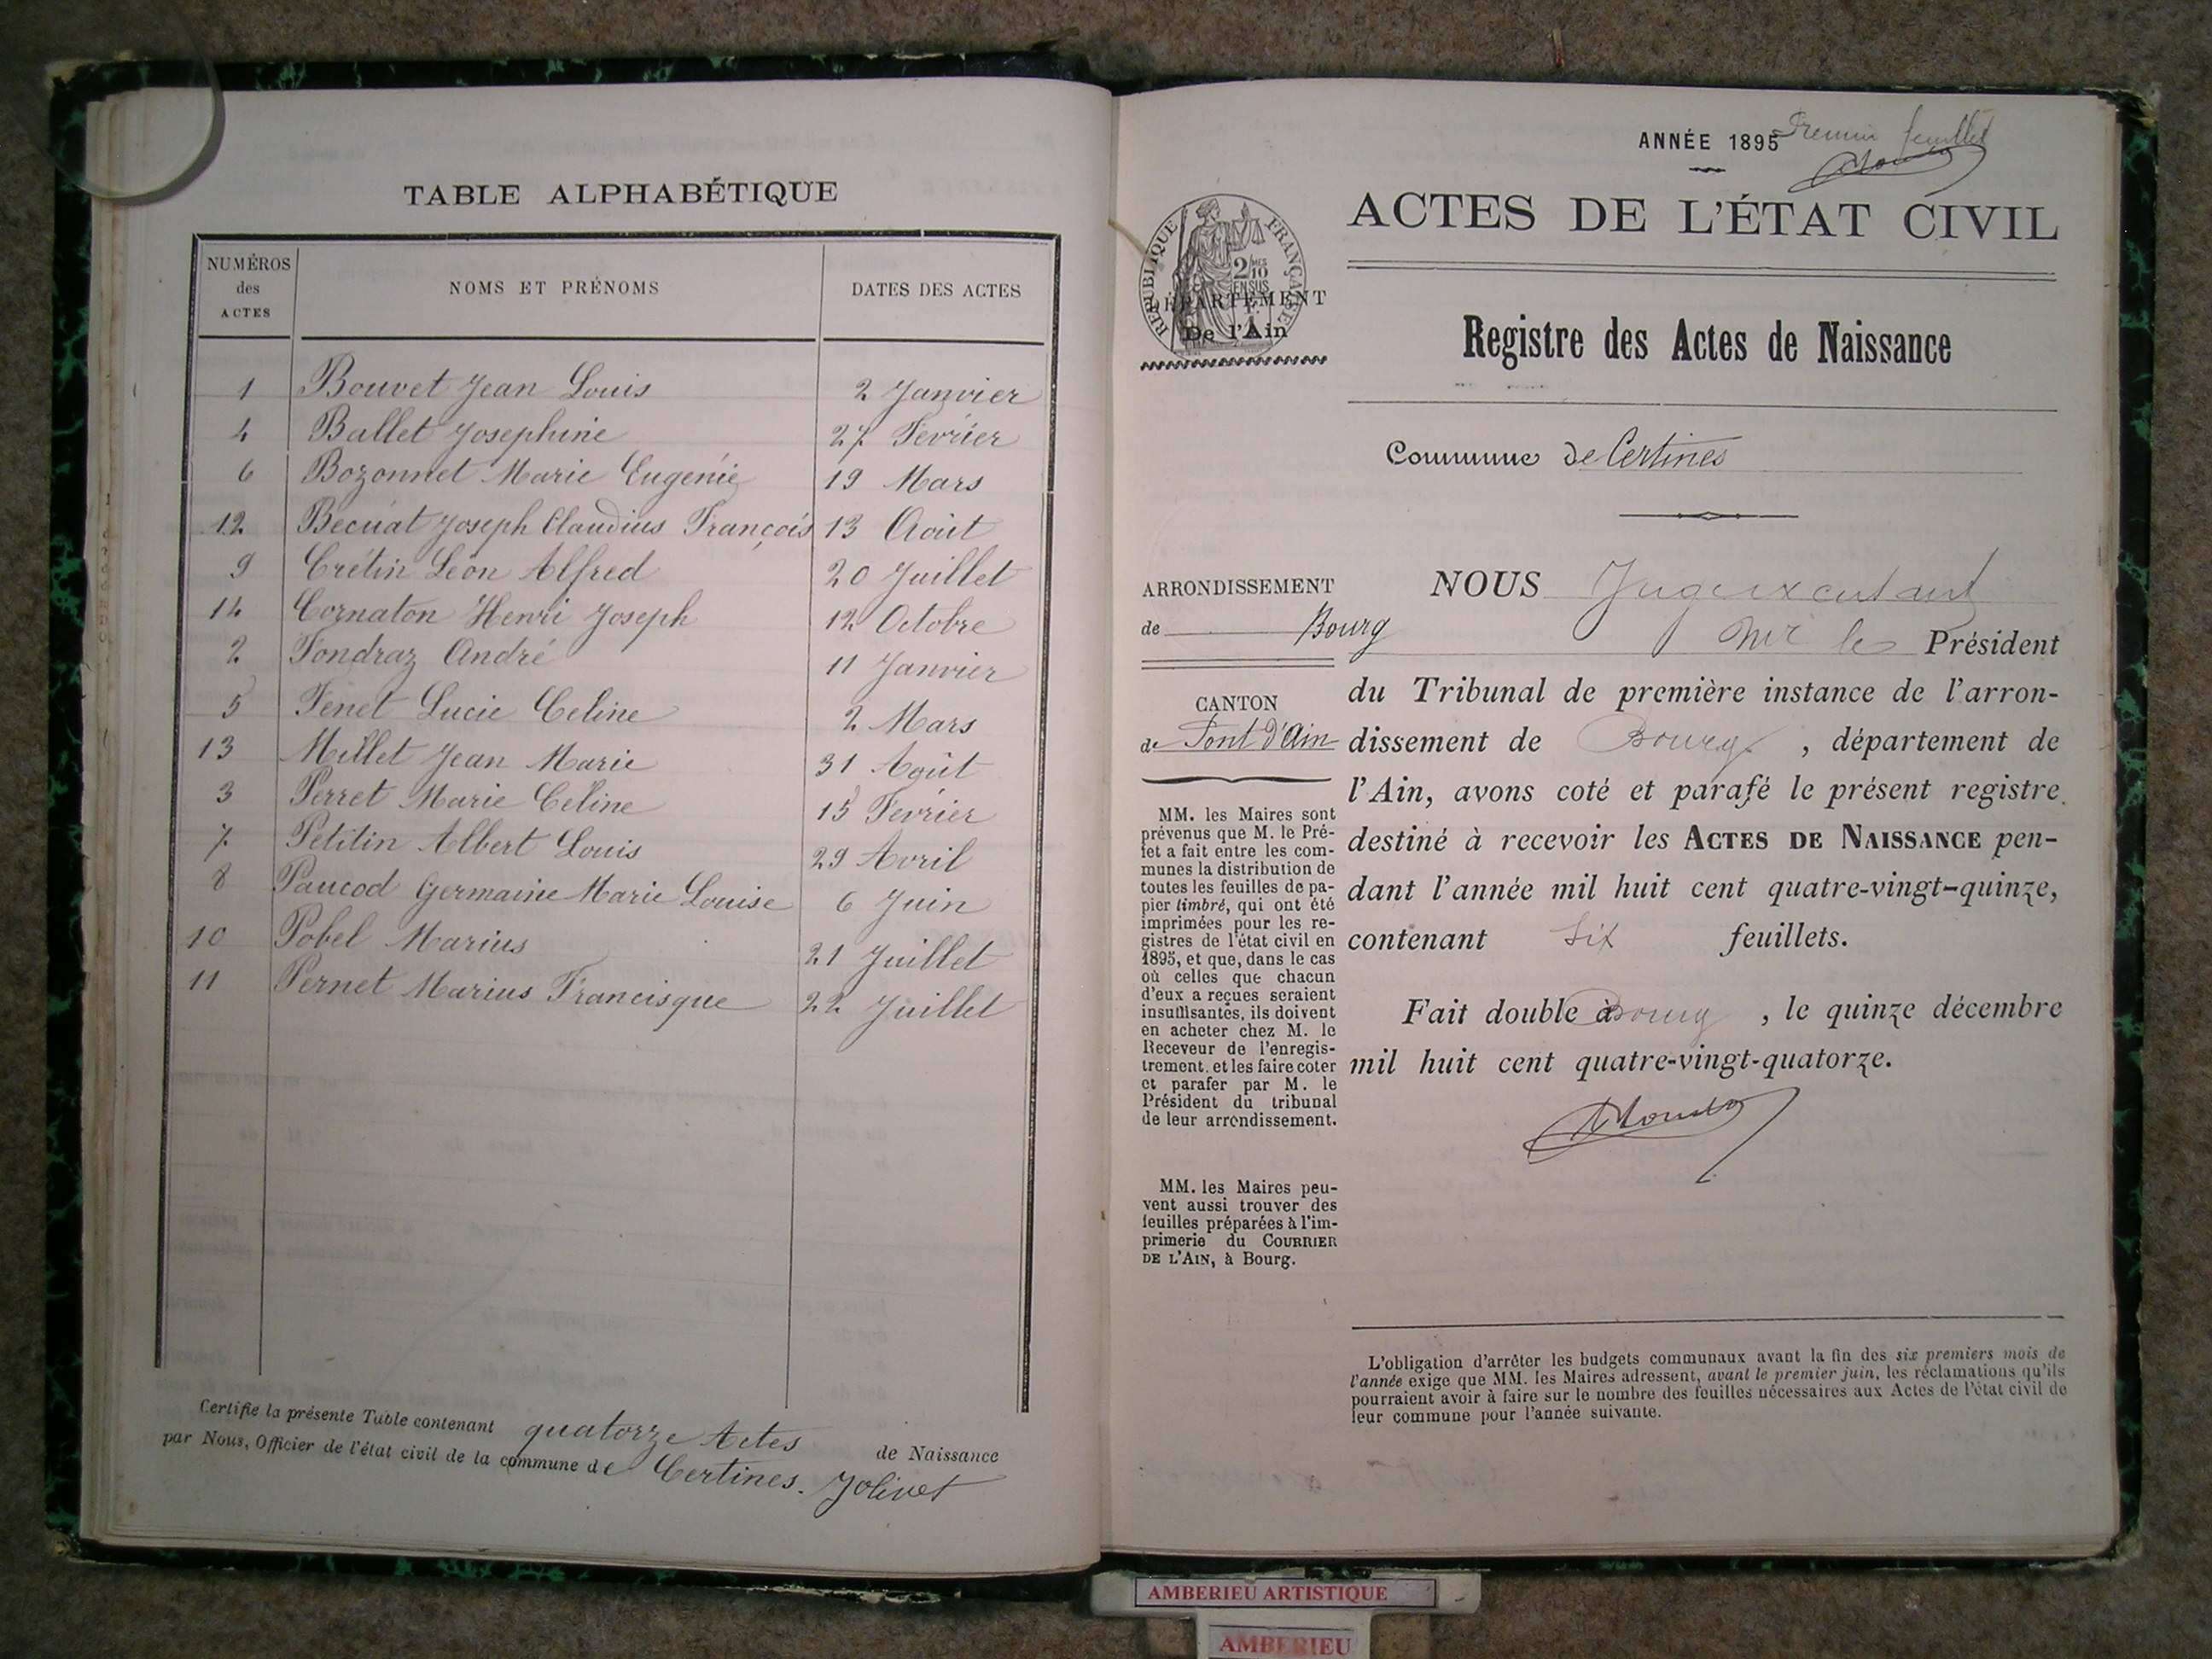 TABLE ALPHABÉTIQUE
NUMÉROS
des
ACTES
NOMS ET PRÉNOMS
DATES DES ACTES
1 Bouvet Jean Louis 2 Janvier
4 Ballet Josephine 27 Fevrier
6 Bozonnet Marie Eugenie 19 Mars
12 Becuat Joseph Claudius François 13 Août
9 Crétin Léon Alfred 20 Juillet
14 Cornaton Henri Joseph 12 Octobre
2 Fondraz André 11 Janvier
5 Fenet Lucie Celine 2 Mars
13 Millet Jean Marie 31 Août
3 Perret Marie Celine 15 Fevrier
7 Petitin Albert Louis 29 Avril
8 Paucod Germaine Marie Louise 6 Juin
10 Pobel Marius 21 Juillet
11 Pernet Marius Francisque 22 Juillet
Certifie la présente Table contenant quatorze Actes de Naissance
par Nous, Officier de l'état civil de la commune de Certines. Jolivet
ANNÉE 1895 Premier feuillet
ACTES DE L'ÉTAT CIVIL
RÉPUBLIQUE FRANÇAISE
2/10
EN SUS
DÉPARTEMENT
De l'Ain
Registre des Actes de Naissance
Commune de Certines
ARRONDISSEMENT
de Bourg
CANTON
de Pont d'Ain
MM. les Maires sont
prévenus que M. le Pré-
fet a fait entre les com-
munes la distribution de
toutes les feuilles de pa-
pier timbré, qui ont été
imprimées pour les re-
gistres de l'état civil en
1895, et que, dans le cas
où celles que chacun
d'eux a reçues seraient
insuffisantes, ils doivent
en acheter chez M. le
Receveur de l'enregis-
trement, et les faire coter
et parafer par M. le
Président du tribunal
de leur arrondissement.
MM. les Maires peu-
vent aussi trouver des
feuilles préparées à l'im-
primerie du COURRIER
DE L'AIN, à Bourg.
NOUS
Mr le Président
du Tribunal de première instance de l'arron-
dissement de Bourg, département de
l'Ain, avons coté et parafé le présent registre
destiné à recevoir les ACTES DE NAISSANCE pen-
dant l'année mil huit cent quatre-vingt-quinze,
contenant six feuillets.
Fait double à Bourg, le quinze décembre
mil huit cent quatre-vingt-quatorze.
L'obligation d'arrêter les budgets communaux avant la fin des six premiers mois de
l'année exige que MM. les Maires adressent, avant le premier juin, les réclamations qu'ils
pourraient avoir à faire sur le nombre des feuilles nécessaires aux Actes de l'état civil de
leur commune pour l'année suivante.
AMBERIEU ARTISTIQUE
AMBERIEU